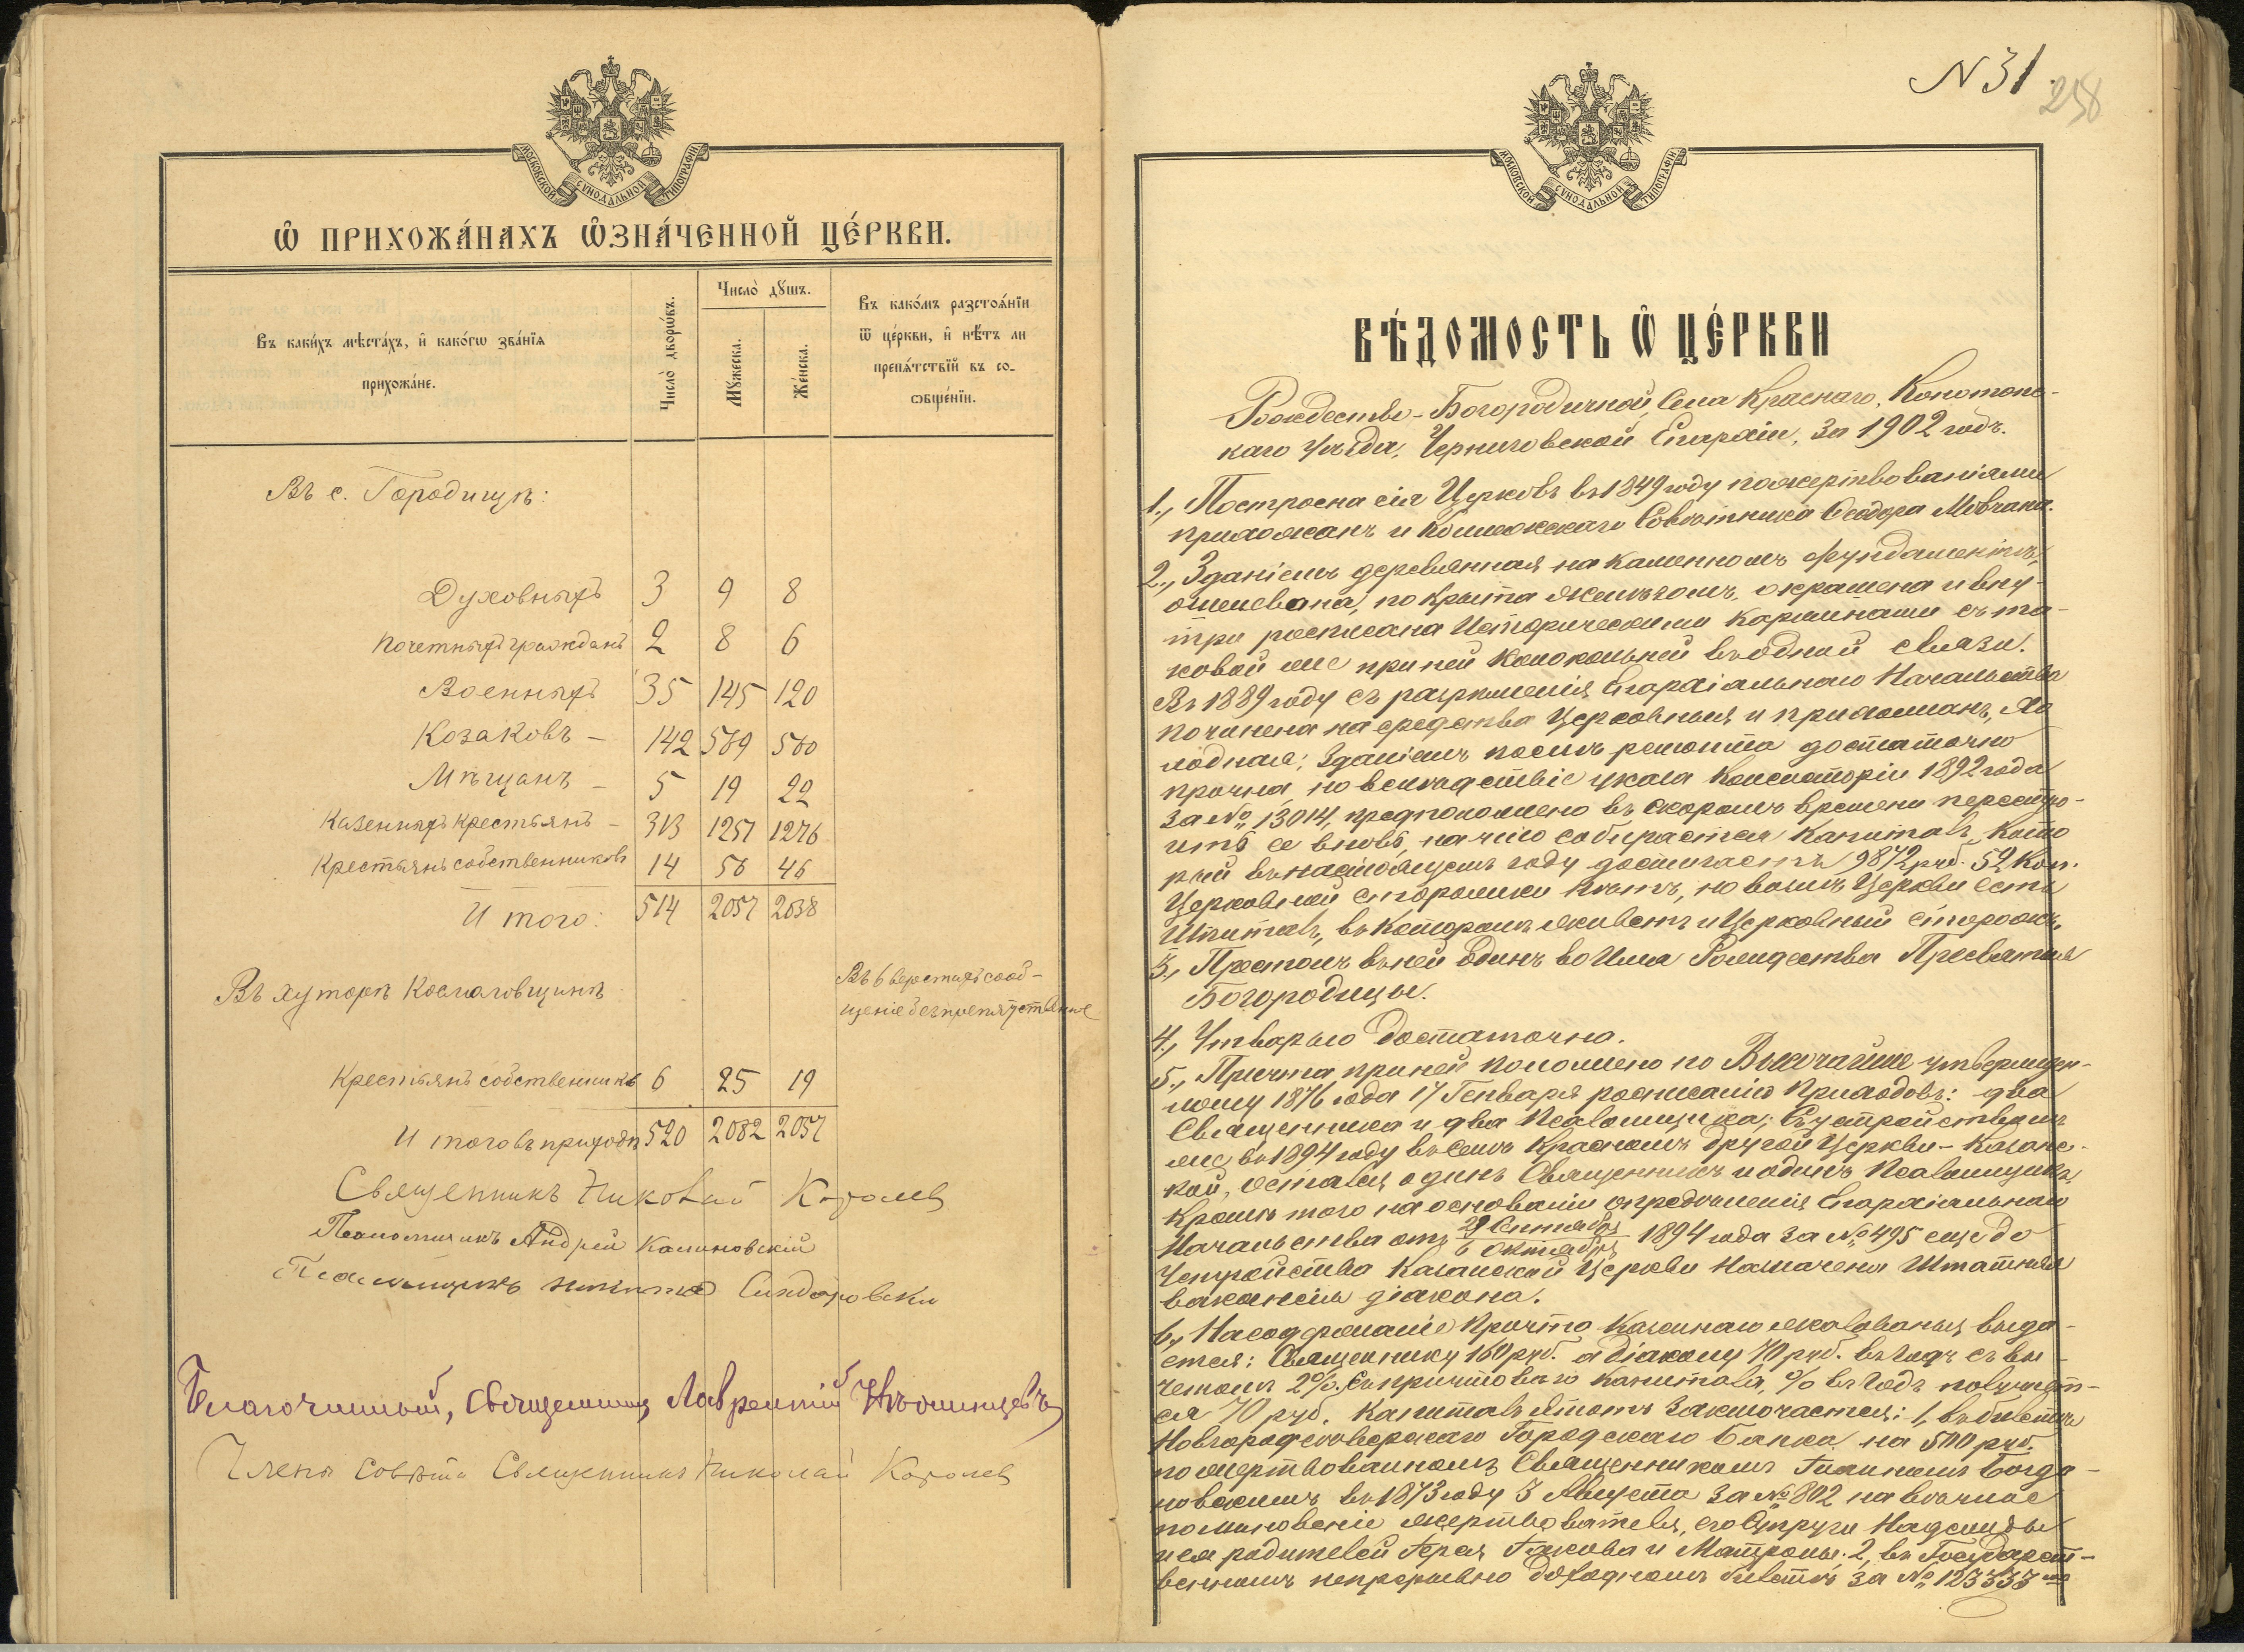 МОСКОВСКОЙ СУНОДАЛЬНОЙ ТИПОГРАФІИ
Ѿ ПРИХОЖА́НАХЪ Ѡ҆ЗНА́ЧЕННОЙ ЦЕ́РКВИ.
Въ каки́хъ мѣста́хъ, и҆ како́гѡ зва́нїѧ
прихожа́не.
Число̀ дворѡ́въ.
Число̀ дꙋшъ.
Мꙋ́жеска.
Же́нска.
Въ како́мъ разстоѧ́нїи
ѿ це́ркви, и҆ нѣ́тъ ли
препѧ́тствїй въ со-
ѻбще́нїи.
Въ с. Городищѣ:
Духовныхъ 3 9 8
Почетныхъ гражданъ 2 8 6
Военныхъ 35 145 120
Козаковъ – 142 589 560
Мѣщанъ – 5 19 22
Казенныхъ крестьянъ – 313 1251 1276
Крестьянъ собственниковъ 14 56 46
Итого: 514 2057 2038
Въ хуторѣ
Въ 6 верстахъ сооб-
щеніе безпрепятственное
Крестьянъ собственниковъ 6 25 19
Итого въ приходѣ 520 2082 2057
Священникъ Николай Королев
Псаломщикъ Андрей Калиновскій
Псаломщикъ
Благочинный, Священникъ Лаврентій
Членъ Совѣта Священникъ Николай Королев
N 31.
258
МОСКОВСКОЙ СУНОДАЛЬНОЙ ТИПОГРАФІИ
ВѢ́ДОМОСТЬ Ѡ҆ ЦЕ́РКВИ
Рождество-Богородичной, села Краснаго, Конотопс-
каго уѣзда, Черниговской Епархіи, за 1902 годъ.
1., Построена сія Церковь въ 1849 году пожертвованіями
прихожанъ и Коллежскаго Совѣтника Ѳеодора Мовчана.
2., Зданіемъ деревянная на каменномъ фундаментѣ,
ошелевана, покрыта желѣзомъ, окрашена и вну-
три росписана Историческими картинами съ та-
ковой же при ней колокольней въ одной связи.
Въ 1889 году съ разрѣшенія Епархіальнаго Начальства
починена на средства Церковныя и прихожанъ, Хо
лодная; Зданіемъ послѣ ремонта достаточно
прочна, но вслѣдствіе указа Консисторіи 1892 года
за № 13014, предположено въ скоромъ времени перестро-
ить ее вновь, на что собирается капиталъ, кото
рый въ настоящемъ году достигаетъ 9872 руб. 52 коп.
Церковной сторожки нѣтъ, но возлѣ Церкви есть
Шпиталь, въ которомъ живетъ и Церковный сторожъ.
3., Престолъ въ ней Одинъ во Имя Рождества Пресвятыя
Богородицы.
4., Утварью достаточна.
5., Причта при ней положено по Высочайше утвержден-
ному 1876 года 17 Генваря росписанію приходовъ: два
Священника и два Псаломщика; Съ устройствомъ
же въ 1894 году въ селѣ Красномъ другой Церкви – Казанс-
кой, остался одинъ Священникъ и одинъ Псаломщикъ,
Кромѣ того на основаніи опредѣленія Епархіальнаго
Начальства отъ 29 Сентября / 6 Октября 1894 года за № 495 еще до
Устройства Казанской Церкви назначена Штатная
вакансія діакона.
6., На содержаніе Причта казеннаго жалованья выда-
ется: Священнику 160 руб. а діакону 70 руб. въ годъ съ вы-
четомъ 2%. Съ причтоваго капитала, % въ годъ получает-
ся 70 руб. Капиталъ этотъ заключается: 1, въ билетѣ
Новгородсѣверскаго Городскаго Банка на 500 руб.
пожертвованномъ Священникомъ Іоанномъ Богда-
новскимъ въ 1873 году 3 Августа за № 802 на вѣчное
поминовеніе жертвователя, его супруги Надежды
и ея родителей Іерея Іакова и Матроны. 2, въ Государст-
венномъ непрерывно доходномъ билетѣ за № 123333